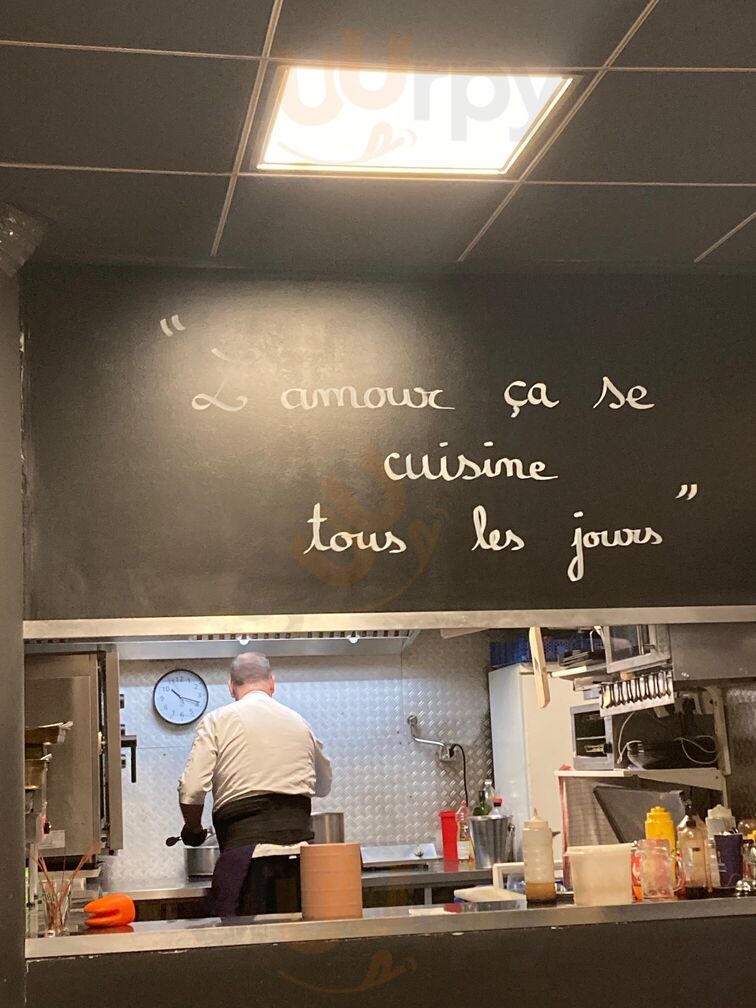 "L'amour ça se
cuisine
tous les jours"